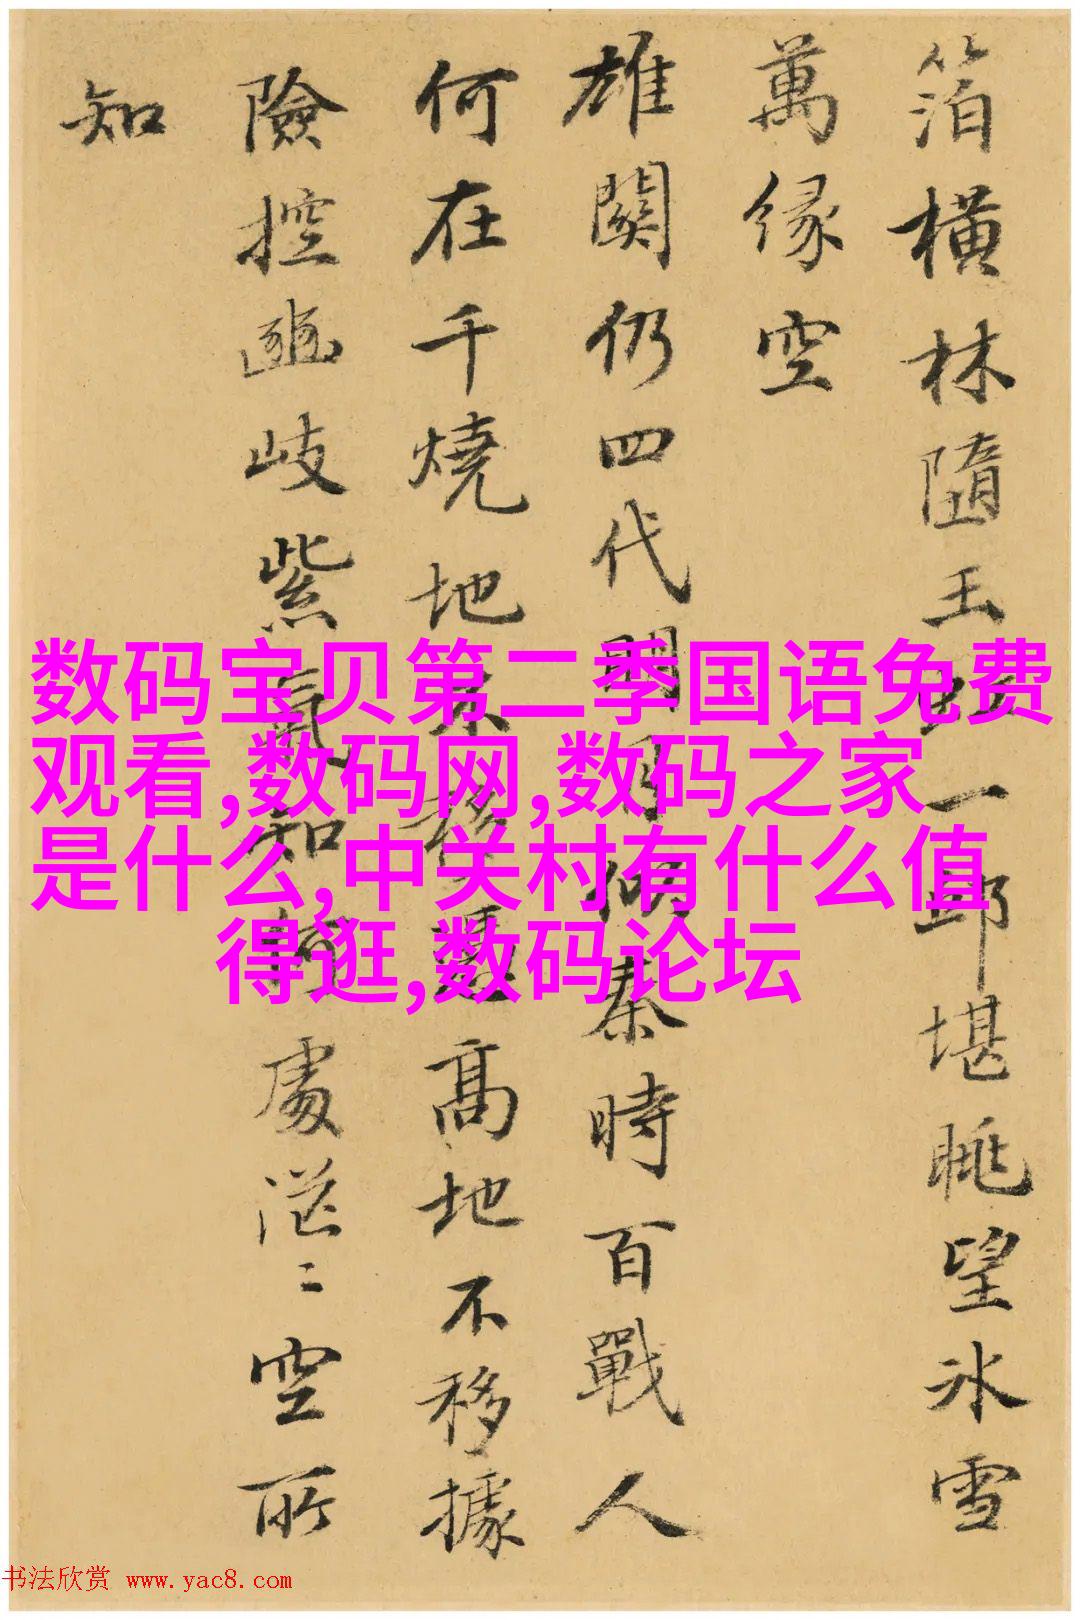 箔橫林隨玉一邱堪眺望冰雪
萬緣空
雄關仍四代明月傾秦時百戰人
何在千燒地高地不移據
險控豳岐紫氣知何處茫〻空所
知
数码宝贝第二季国语免费
观看,数码网,数码之家
是什么,中关村有什么值
得逛,数码论坛
书法欣赏 www.yac8.com